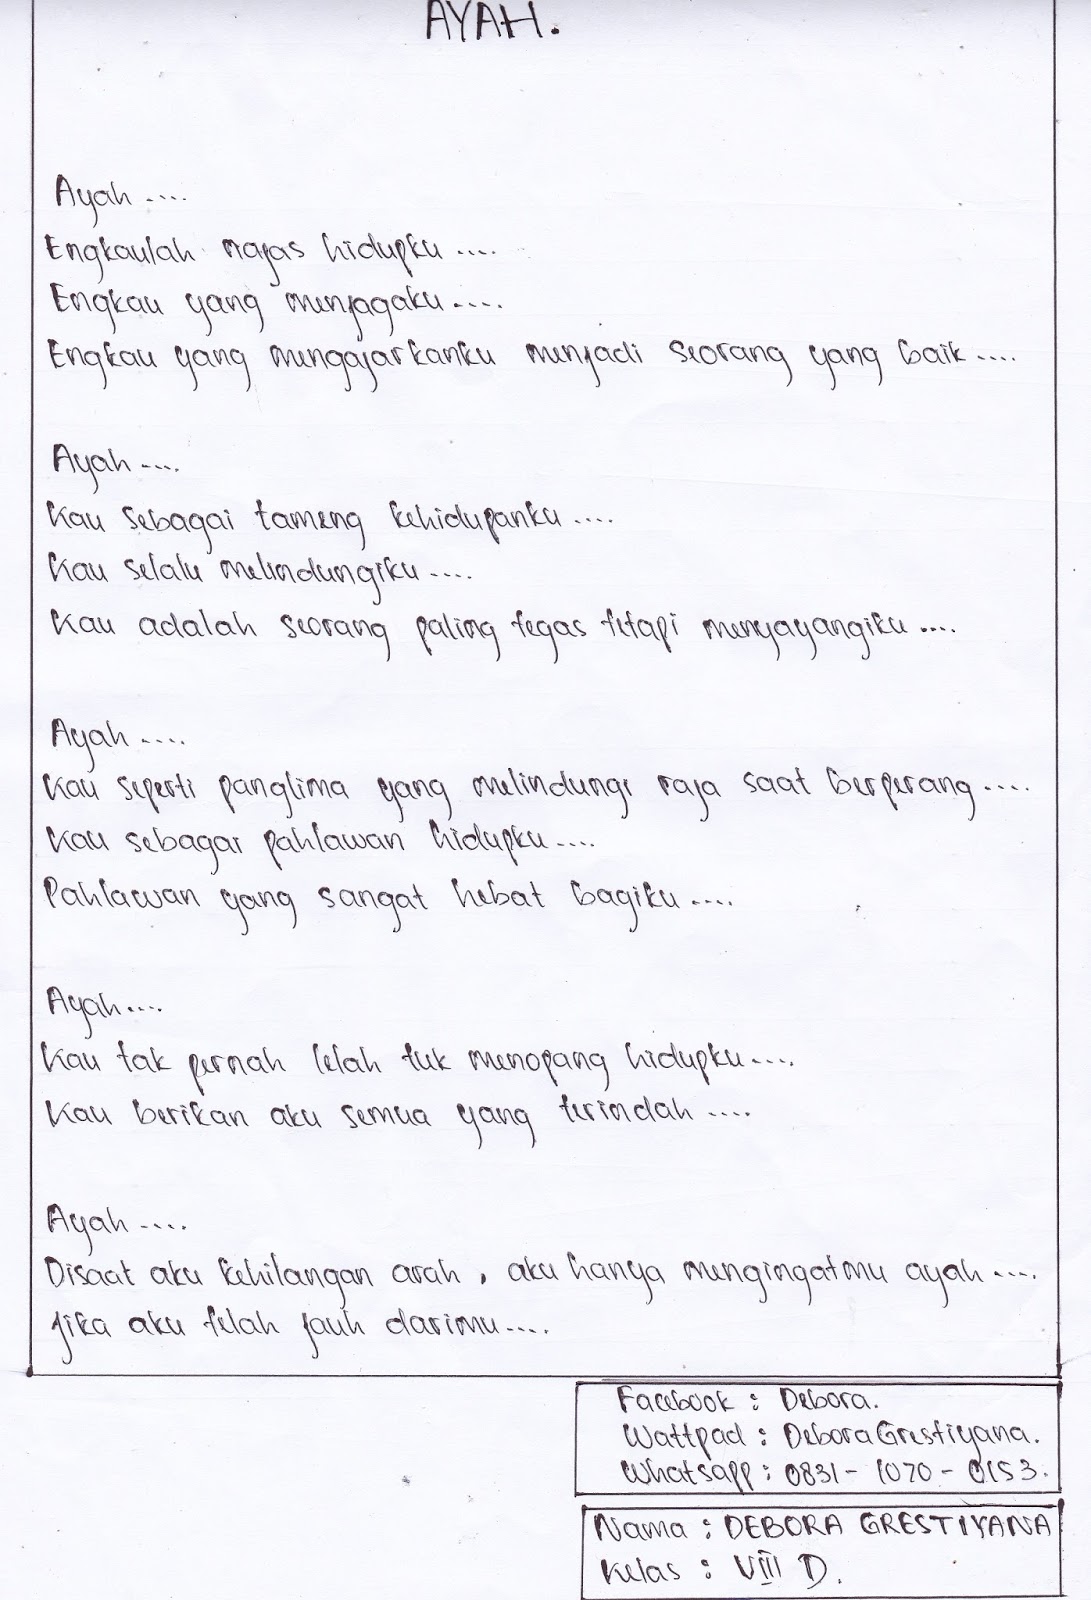 AYAH.
Ayah ....
Engkaulah nafas hidupku ....
Engkau yang menjagaku ....
Engkau yang mengajarkanku menjadi seorang yang baik ....
Ayah ....
Kau sebagai tameng kehidupanku ....
Kau selalu melindungiku ....
Kau adalah seorang paling tegas tetapi menyayangiku ....
Ayah ....
Kau seperti panglima yang melindungi raja saat berperang ....
Kau sebagai pahlawan hidupku ....
Pahlawan yang sangat hebat bagiku ....
Ayah ....
Kau tak pernah lelah tuk menopang hidupku ....
Kau berikan aku semua yang terindah ....
Ayah ....
Disaat aku kehilangan arah, aku hanya mengingatmu ayah ....
Jika aku telah jauh darimu ....
Facebook : Debora.
Wattpad : DeboraGrestiyana.
Whatsapp : 0831 - 1070 - 0153.
Nama : DEBORA GRESTIYANA
Kelas : VIII D.